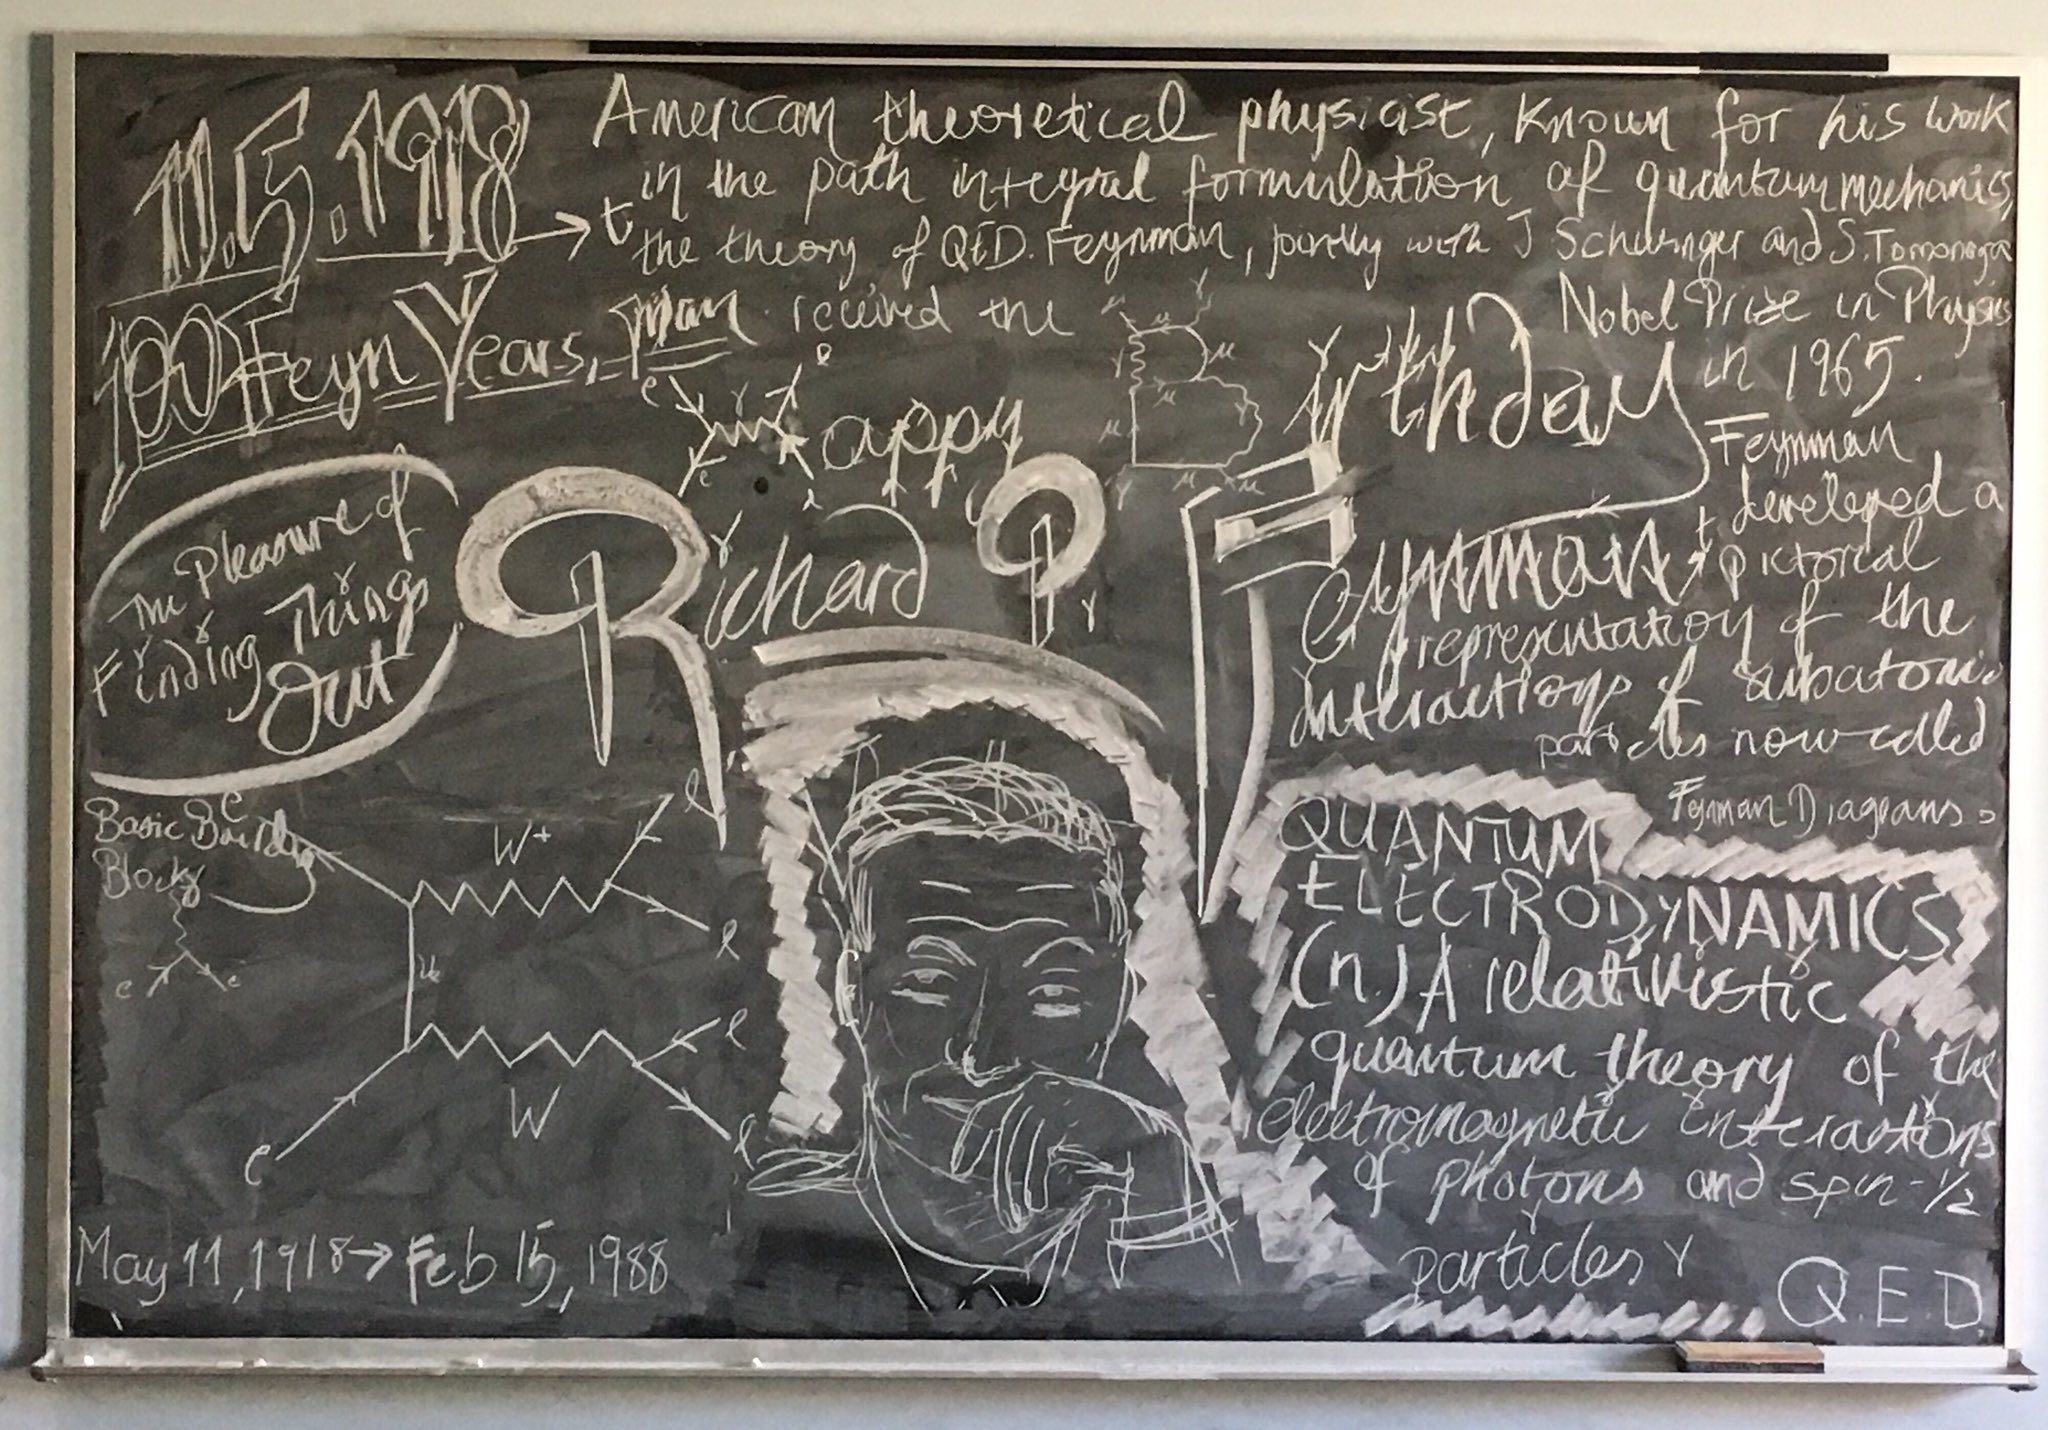 11.5.1918
American theoretical physicist, known for his work
in the path integral formulation of quantum mechanics,
the theory of QED. Feynman, jointly with J Schwinger and S. Tomonaga
100 Feyn Years, Man. received the
Nobel Prize in Physics
in 1965.
Happy Birthday
Richard P Feynman
Feynman
developed a
pictorial
representation of the
interactions of subatomic
particles now called
Feynman Diagrams
The Pleasure of
Finding Things
Out
Basic Building
Blocks
e
W+
l
l
e
e
l
W
e
l
QUANTUM
ELECTRODYNAMICS
(n.) A relativistic
quantum theory of the
electromagnetic interactions
of photons and spin-1/2
particles γ
May 11, 1918 → Feb 15, 1988
Q.E.D.